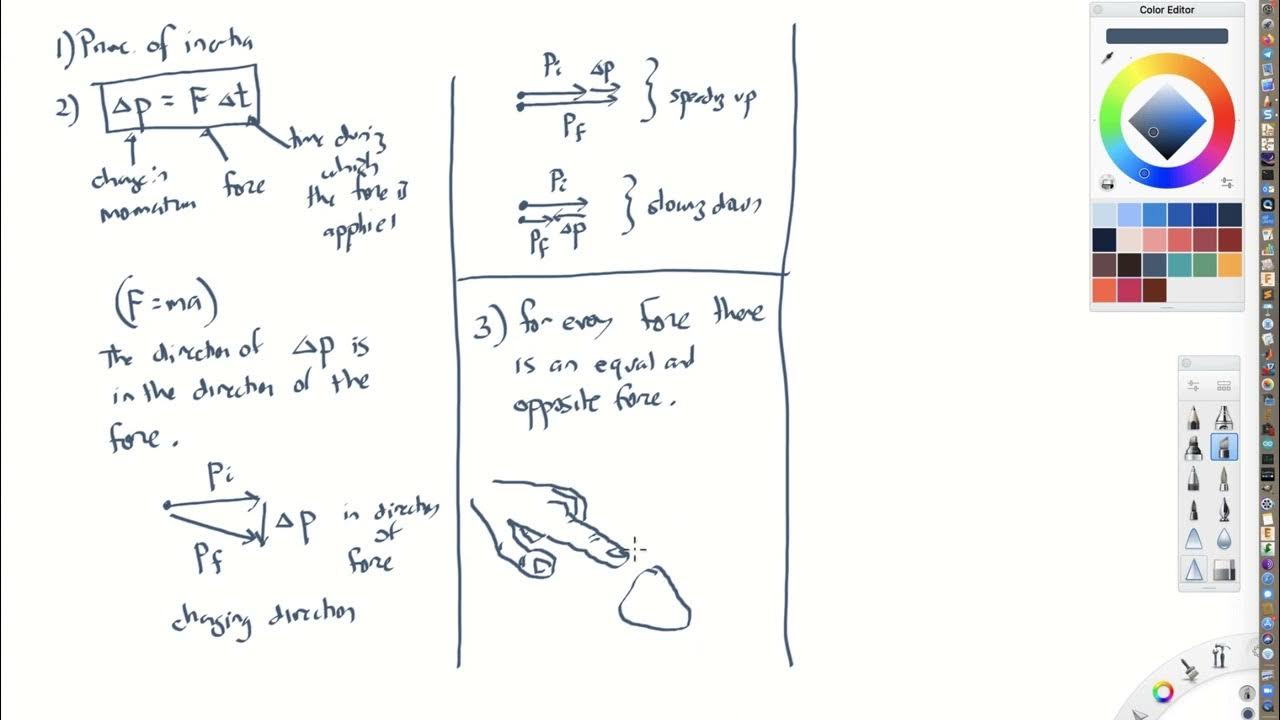 1) Princ. of inertia
2) Δp = F Δt
change in
momentum
force
time during
which
the force is
applied
(F = ma)
The direction of Δp is
in the direction of the
force.
Pi
Δp in direction
of
force
Pf
changing direction
Pi Δp
Pf
speeding up
Pi
Pf Δp
slowing down
3) for every force there
is an equal and
opposite force.
Color Editor